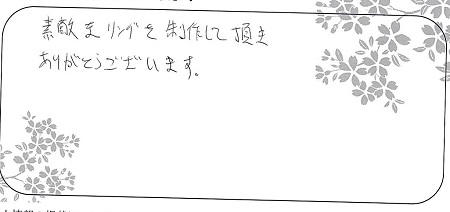 素敵なリングを制作して頂き
ありがとうございます。